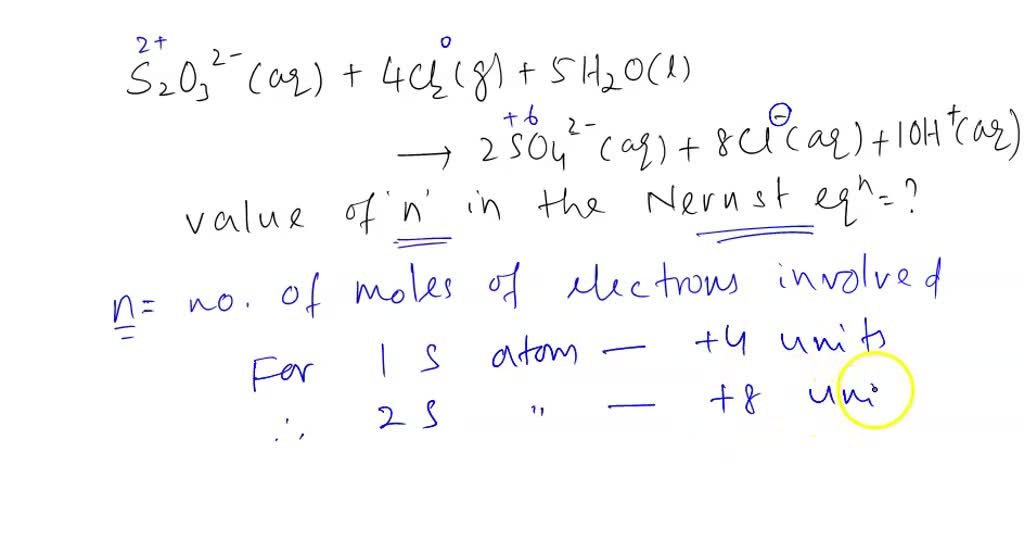 2+ 0
S₂O₃²⁻(aq) + 4Cl₂(g) + 5H₂O(l)
+6
⟶ 2SO₄²⁻(aq) + 8Cl⁻(aq) + 10H⁺(aq)
value of 'n' in the Nernst eqⁿ = ?
n = no. of moles of electrons involved
For 1 S atom — +4 units
∴ 2 S " — +8 uni